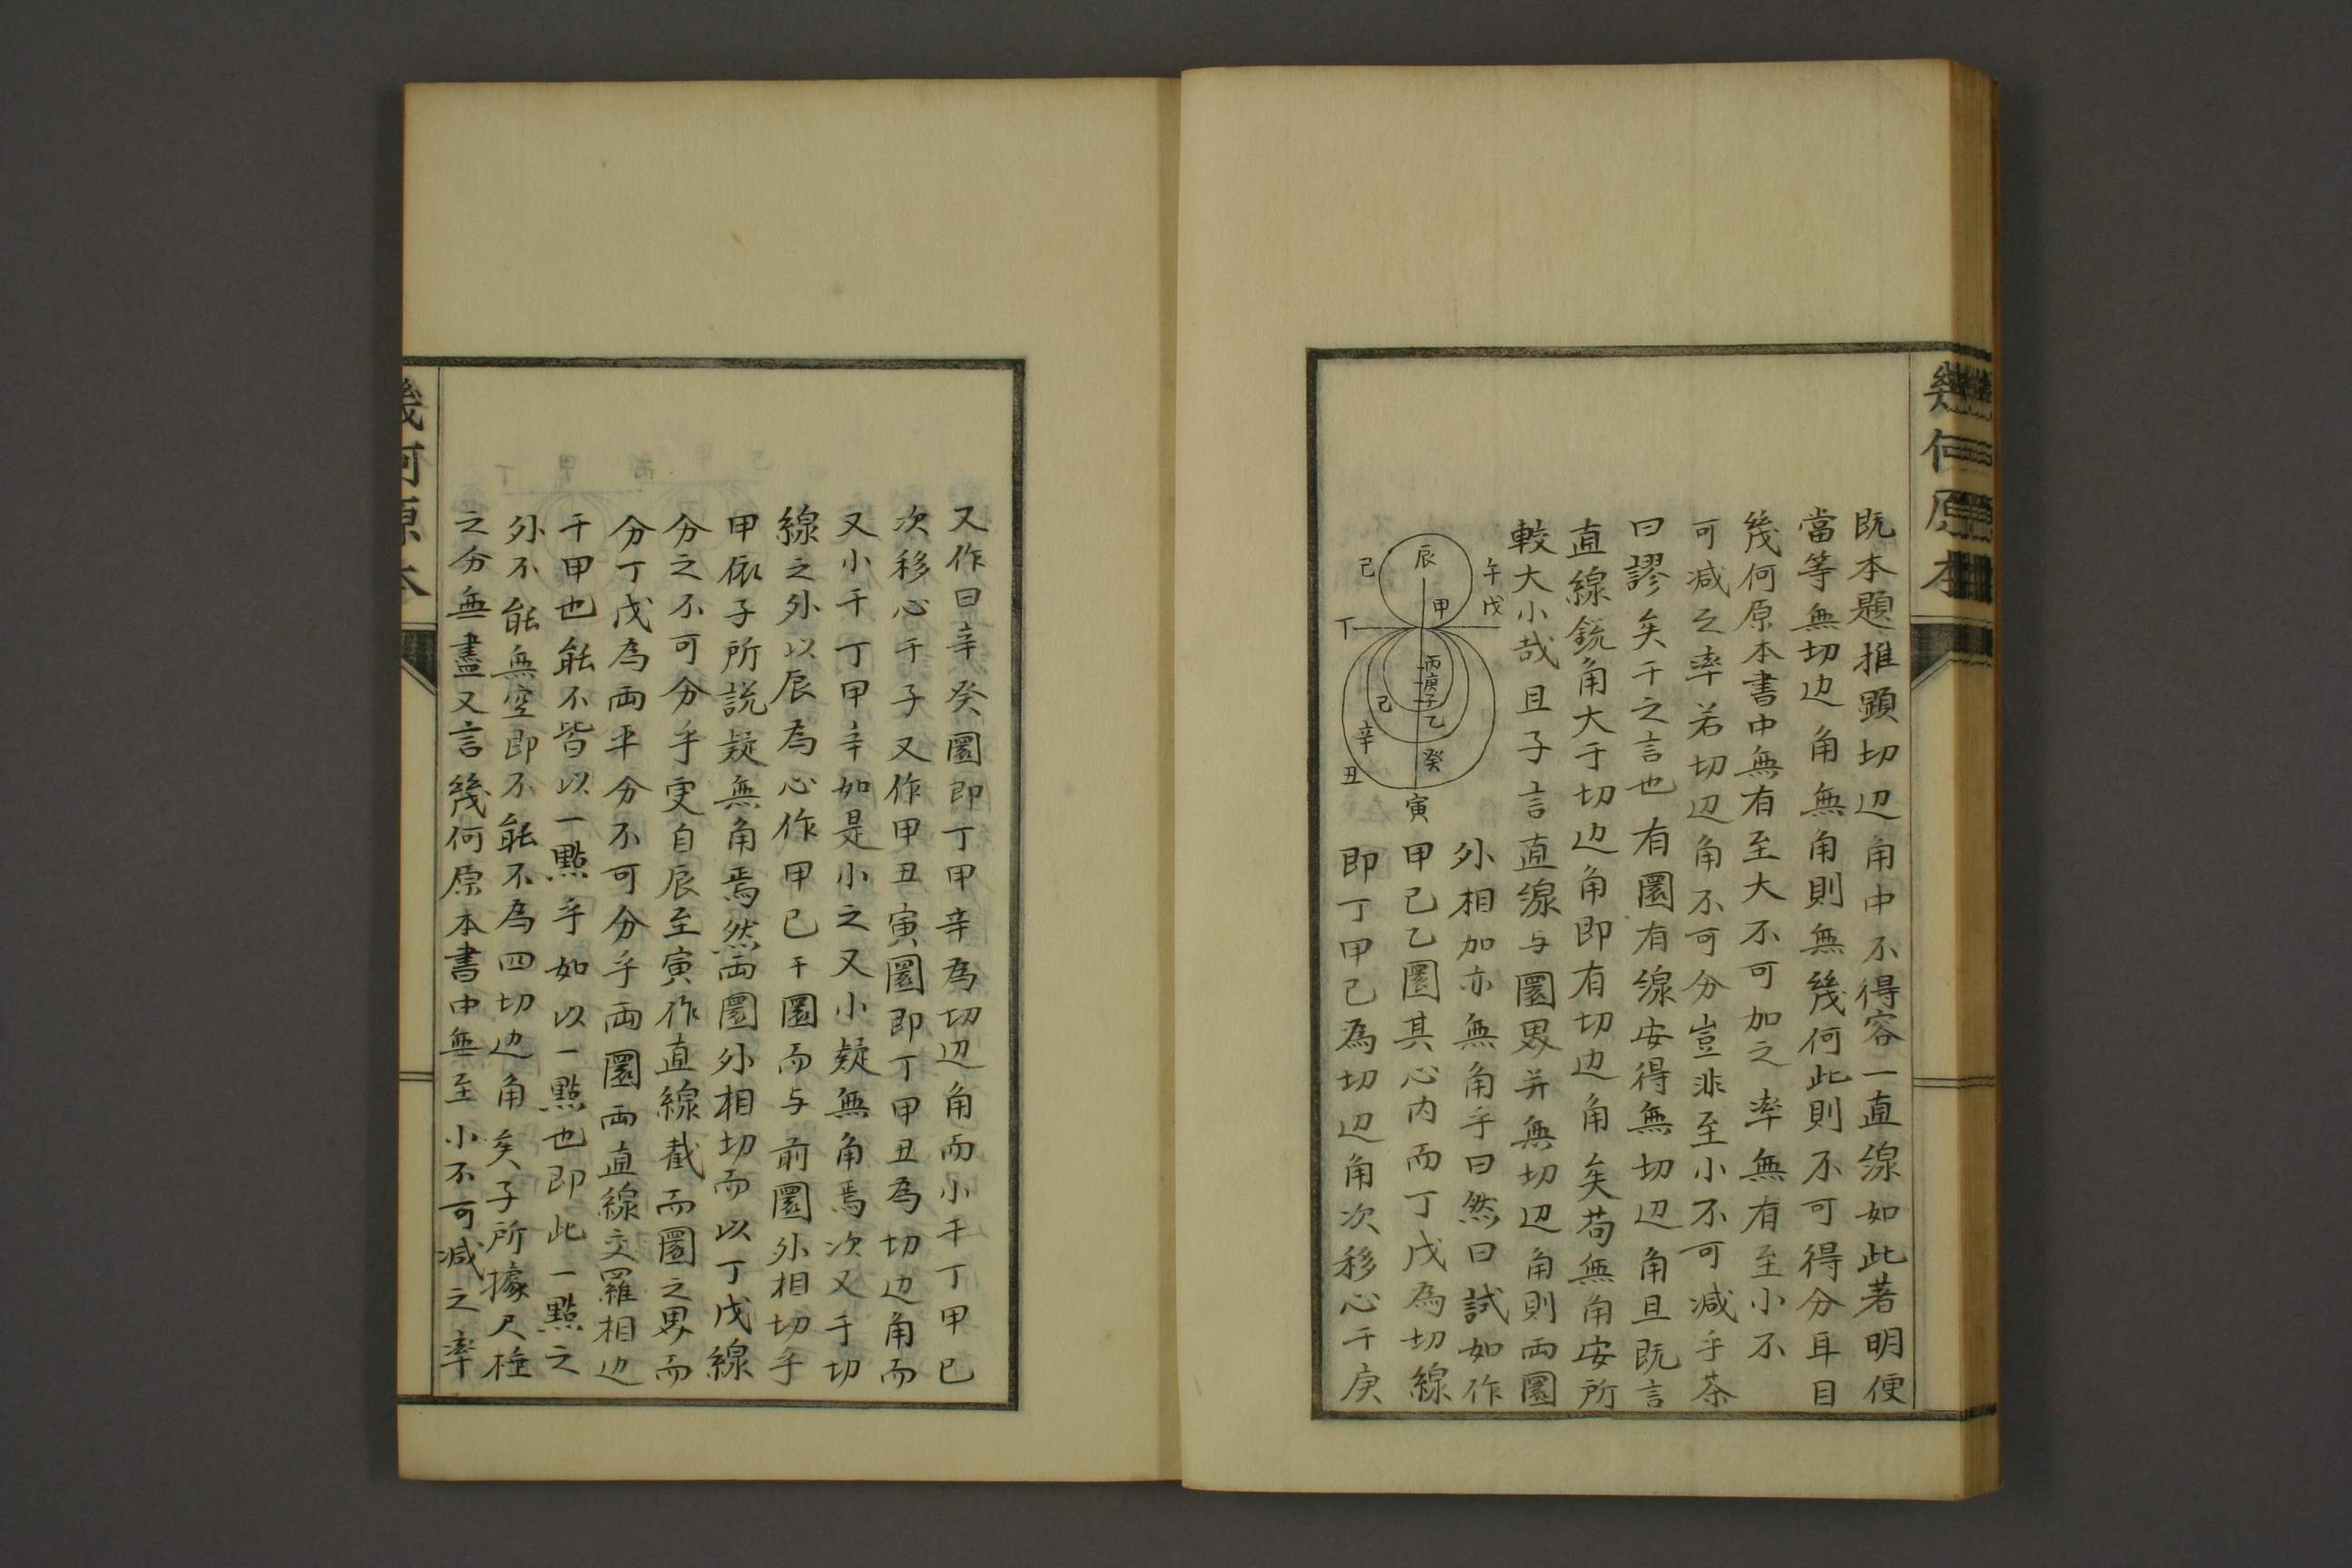 幾何原本
既本題推顕切辺角中不得容一直線如此著明便
當等無切边角無角則無幾何此則不可得分耳目
幾何原本書中無有至大不可加之率無有至小不
可减之率若切辺角不可分豈非至小不可减乎荅
曰謬矣于之言也有圜有線安得無切辺角且既言
直線銳角大于切边角即有切边角矣苟無角安所
較大小哉且子言直線与圜界并無切辺角則兩圜
外相加亦無角乎曰然曰試如作
甲己乙圜其心内而丁戊為切線
即丁甲己為切辺角次移心于庚
辰
午
戊
己
甲
丁
丙
庚
子
乙
己
辛
癸
丑
寅
又作日辛癸圜即丁甲辛為切辺角而小于丁甲已
次移心于子又作甲丑寅圜即丁甲丑為切边角而
又小于丁甲辛如是小之又小疑無角焉次又于切
線之外以辰為心作甲已干圜而与前圜外相切乎
甲依子所説疑無角焉然兩圜外相切而以丁戊線
分之不可分乎更自辰至寅作直線截而圜之界而
分丁戊為両平分不可分乎両圜両直線交羅相边
于甲也能不皆以一點乎如以一點也即此一點之
外不能無空即不能不為四切边角矣子所據尺棰
之分無盡又言幾何原本書中無至小不可减之率
幾何原本